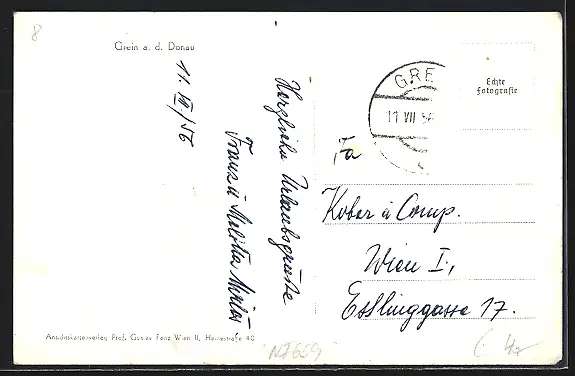 8
Grein a. d. Donau
11. VII/56
Herzliche Urlaubsgrüße
Franz u Melitta
GRE
11 VII 56
Echte
Fotografie
Fa
Kober u Comp.
Wien I.,
Eßlinggasse 17.
Ansichtskartenverlag Prof. Gustav Fenz Wien II, Heinestraße 40
N7659